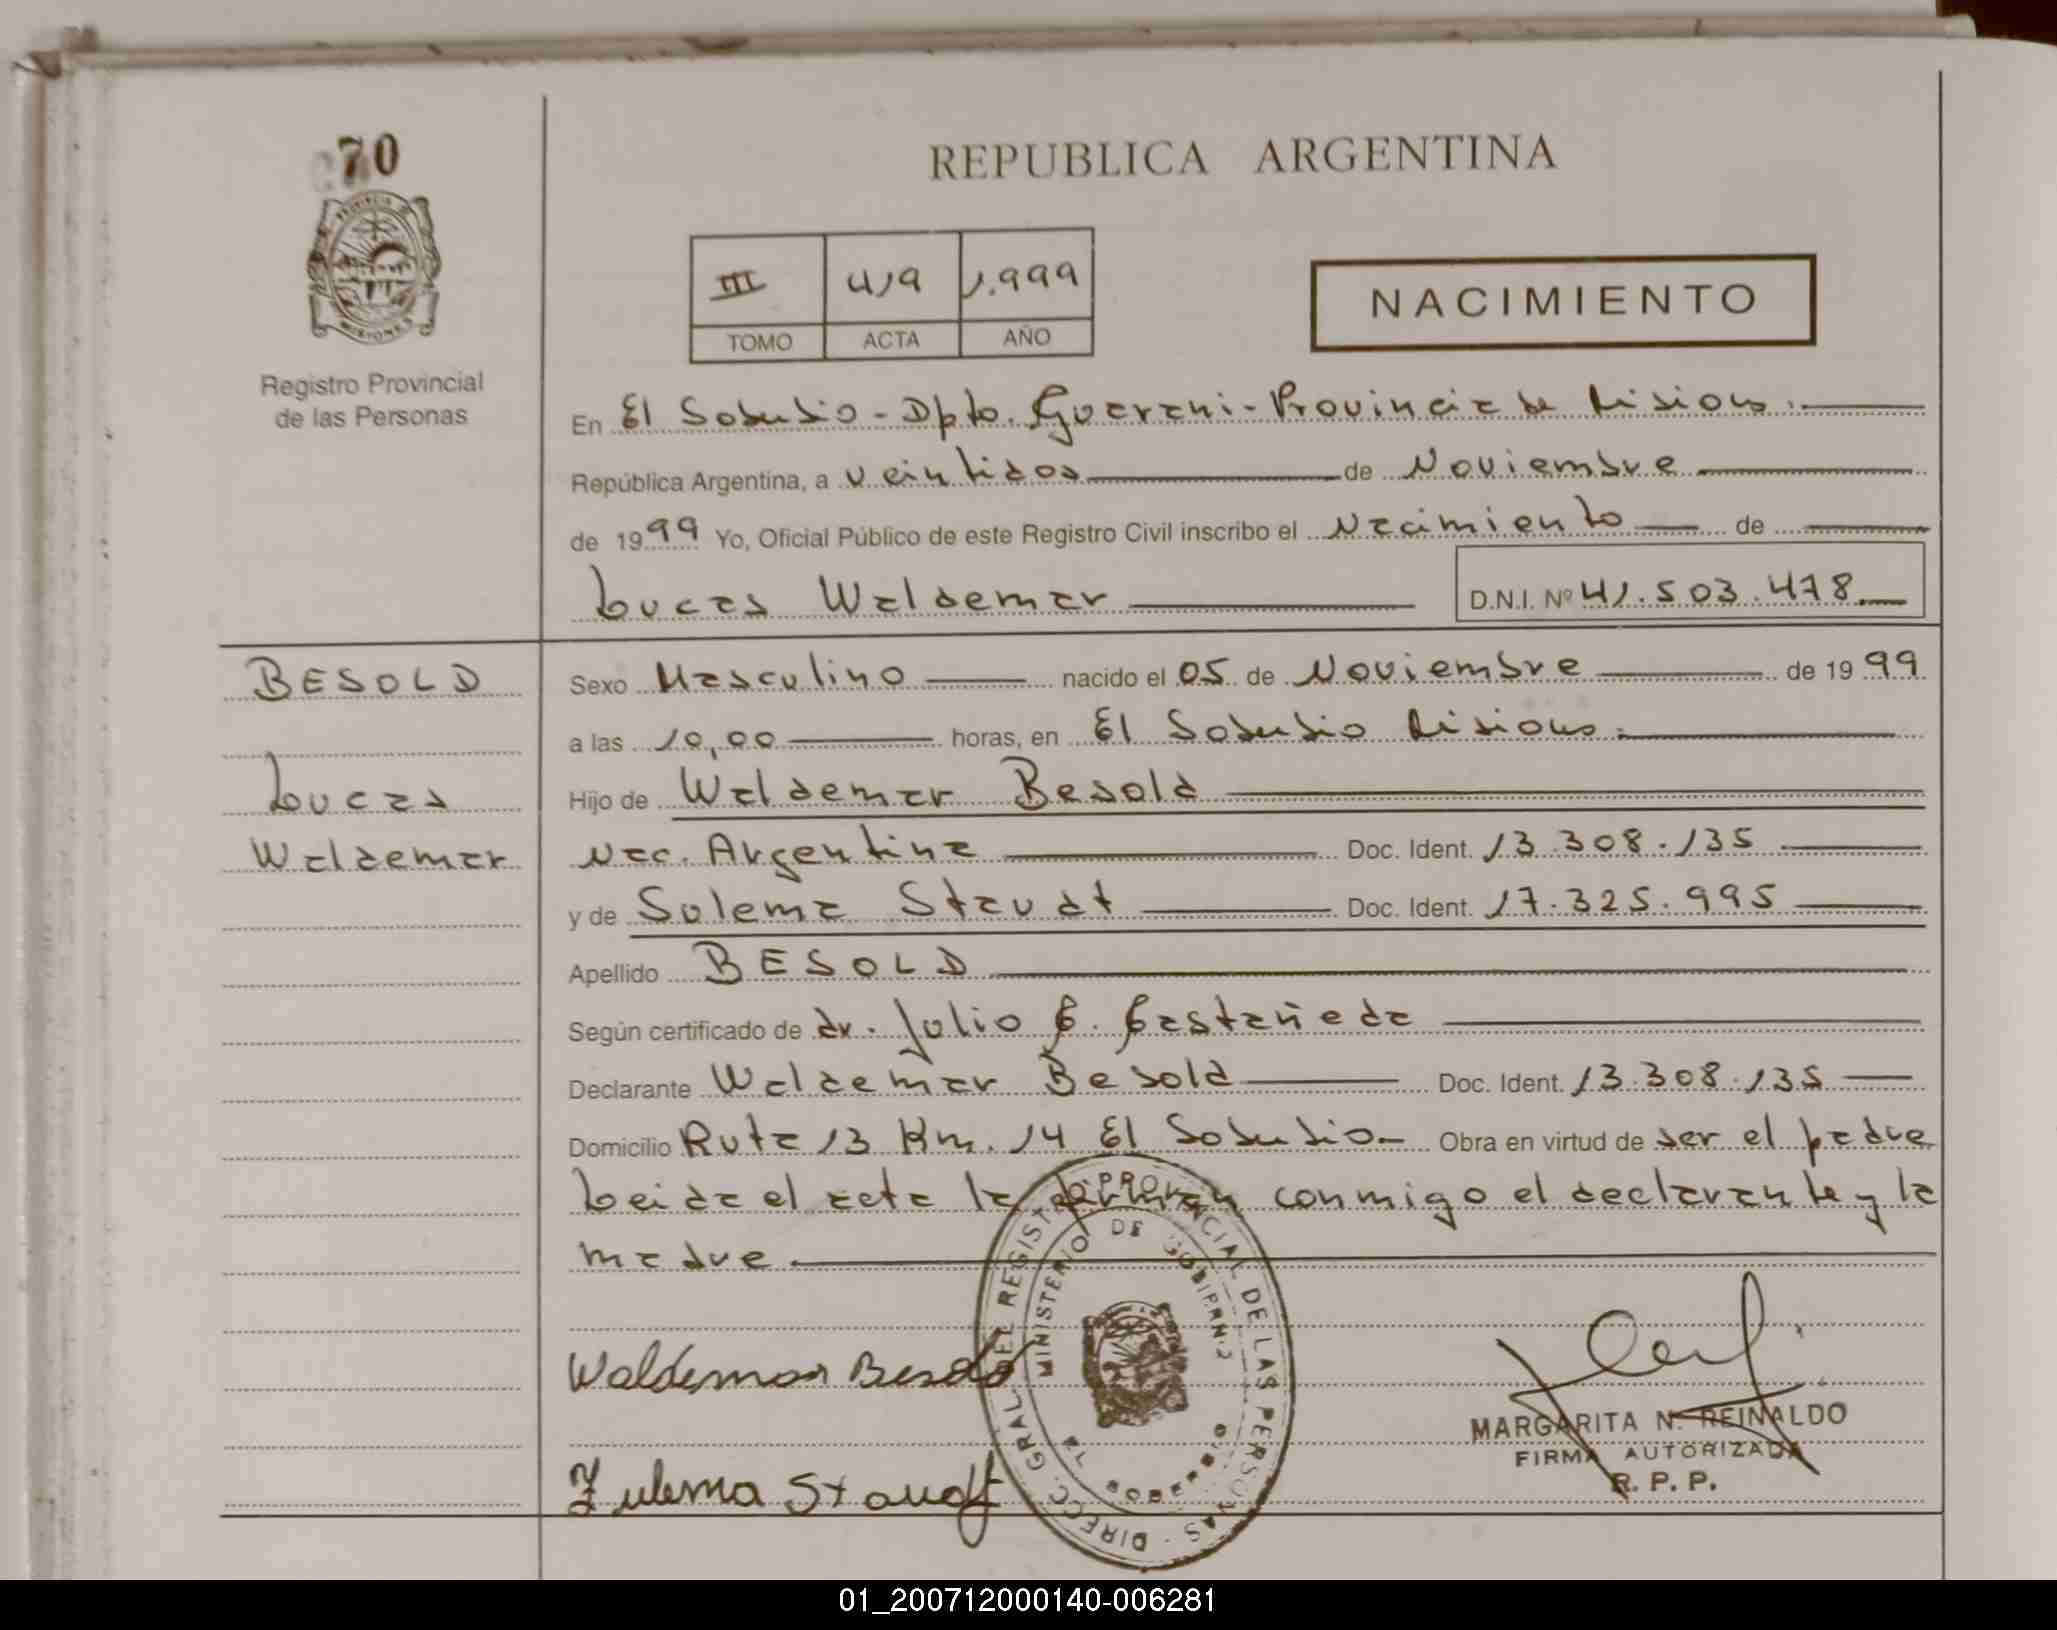 70
REPUBLICA ARGENTINA
III 419 1.999
TOMO ACTA AÑO
NACIMIENTO
PROVINCIA DE
MISIONES
Registro Provincial
de las Personas
En El Soberbio - Dpto. Guarani - Provincia de Misiones.
República Argentina, a veintidos de Noviembre
de 1999 Yo, Oficial Público de este Registro Civil inscribo el Nacimiento de
Lucas Waldemar D.N.I. Nº 41.503.478.
BESOLD
Lucas
Waldemar
Sexo Masculino nacido el 05 de Noviembre de 1999
a las 10,00 horas, en El Soberbio Misiones.
Hijo de Waldemar Besold
Nac. Argentina Doc. Ident. 13.308.135
y de Sulema Staudt Doc. Ident. 17.325.995
Apellido BESOLD
Según certificado de dr. Julio C. Castañeda
Declarante Waldemar Besold Doc. Ident. 13.308.135
Domicilio Ruta 13 Km. 14 El Soberbio - Obra en virtud de ser el padre
Leida el acta la firman conmigo el declarante y la
madre
DIRECC. GRAL DEL REGISTRO PROVINCIAL DE LAS PERSONAS
MINISTERIO DE GOBIERNO
Waldemar Besold
Zulema Staudt
MARGARITA N. REINALDO
FIRMA AUTORIZADA
R. P. P.
01_200712000140-006281